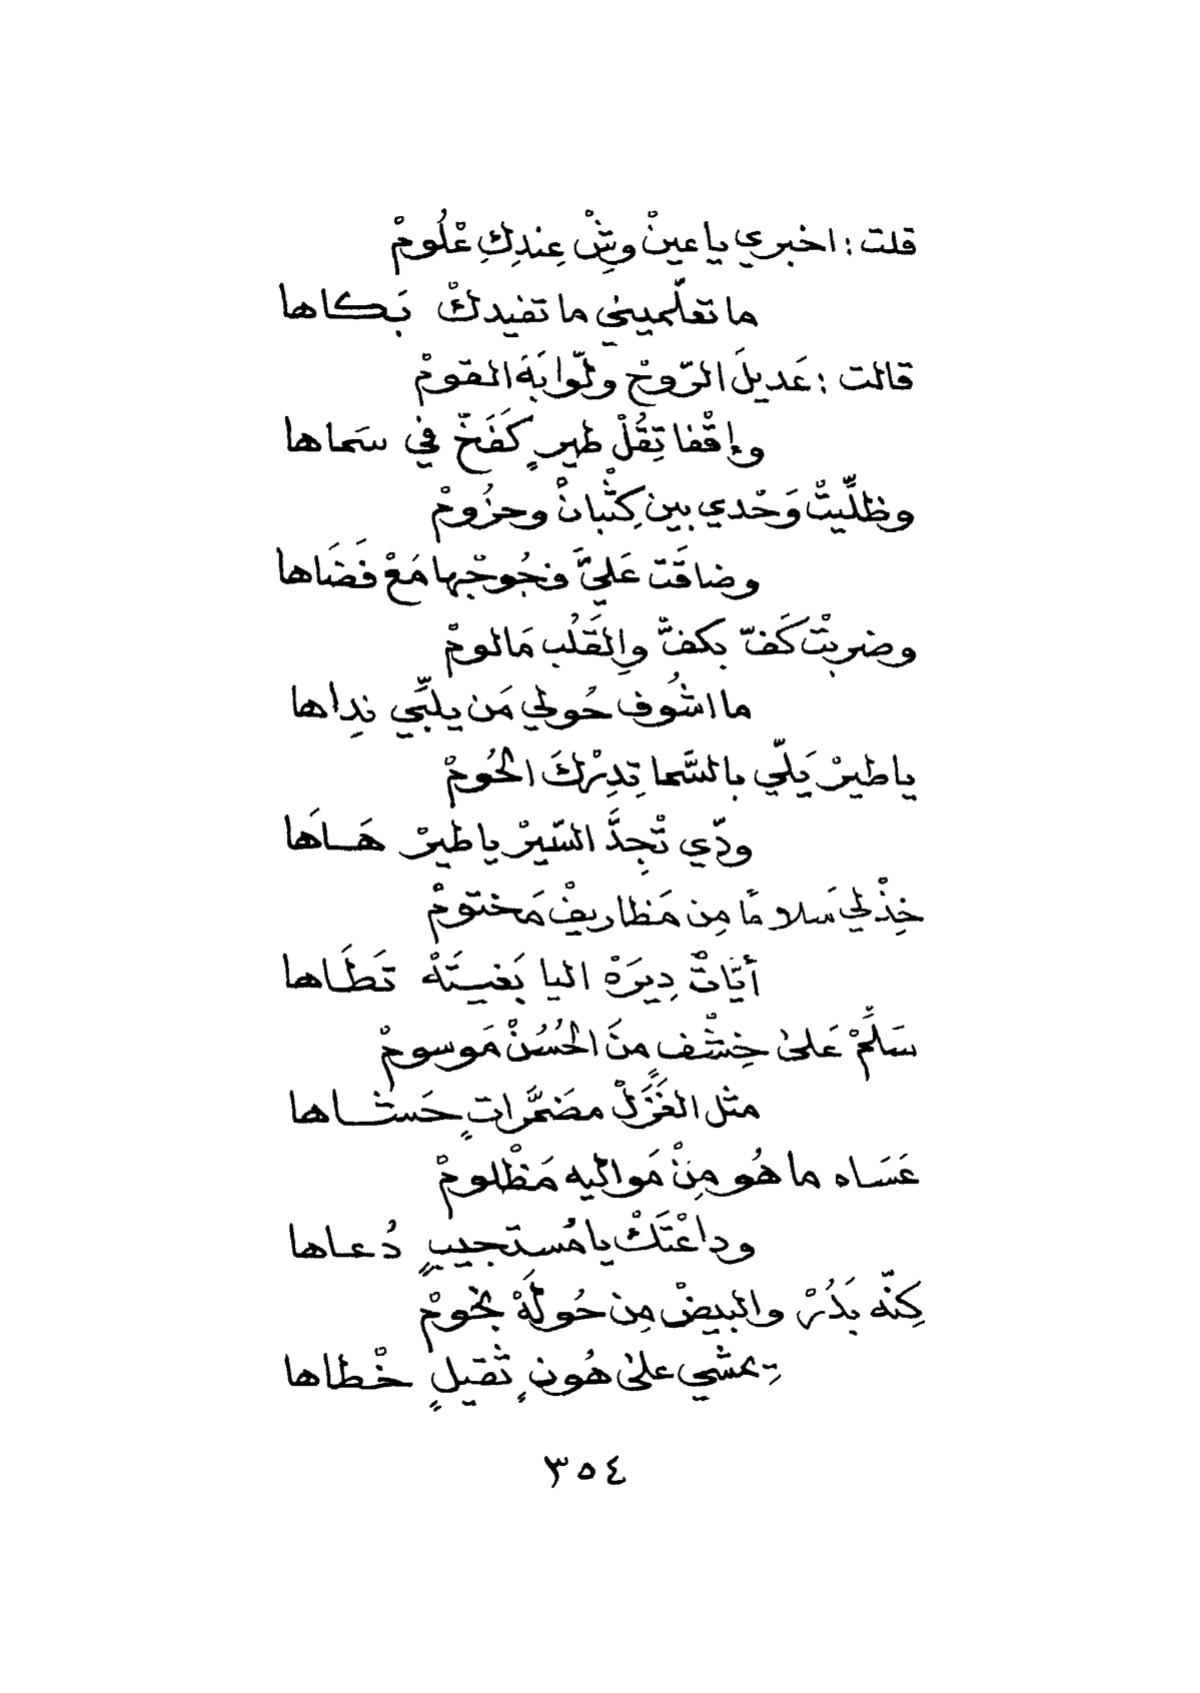 قلت : اخبري ياعينْ وشْ عِندِكِ عْلُومْ
ما تعلّميني ما تفيدكْ بَكاها
قالت : عَديلَ الرّوحْ ولّوا بَهَ القومْ
وإقْفا تِقُلْ طيرٍ كَفَخّ في سَماها
وظلِّيتْ وَحْدي بين كِثْبانْ وحزُومْ
وضاقَت عَليَّ فجُوجْها مَعْ فَضَاها
وضربتْ كَفّ بكفّ والقَلُب مَالومْ
ما اشُوف حُولي مَن يلبِّي نِداها
ياطيرْ يَلّي بالسَّما تِدِرْكَ الحُومْ
ودّي تْجِدَّ السّيرْ ياطيرْ هَـاهَا
خِذْ لي سَلامًا مِن مَظاريفْ مَختومْ
أيَّاتْ دِيرَهْ اليا بَغيتَهْ تَطَاها
سَلِّمْ عَلىٰ خِشْفٍ مِنَ الحُسُنْ مَوسومْ
مثل الغَزَلْ مضَمَّراتٍ حَشـاها
عَسَاه ما هُو مِنْ مَواليه مَظْلومْ
وداعْتَكْ يا مُستجيبٍ دُعاها
كِنّه بَدُرْ والبيضْ مِن حُولَهْ نجومْ
يِمشي علىٰ هُونٍ ثقيلٍ خْطاها
٣٥٤